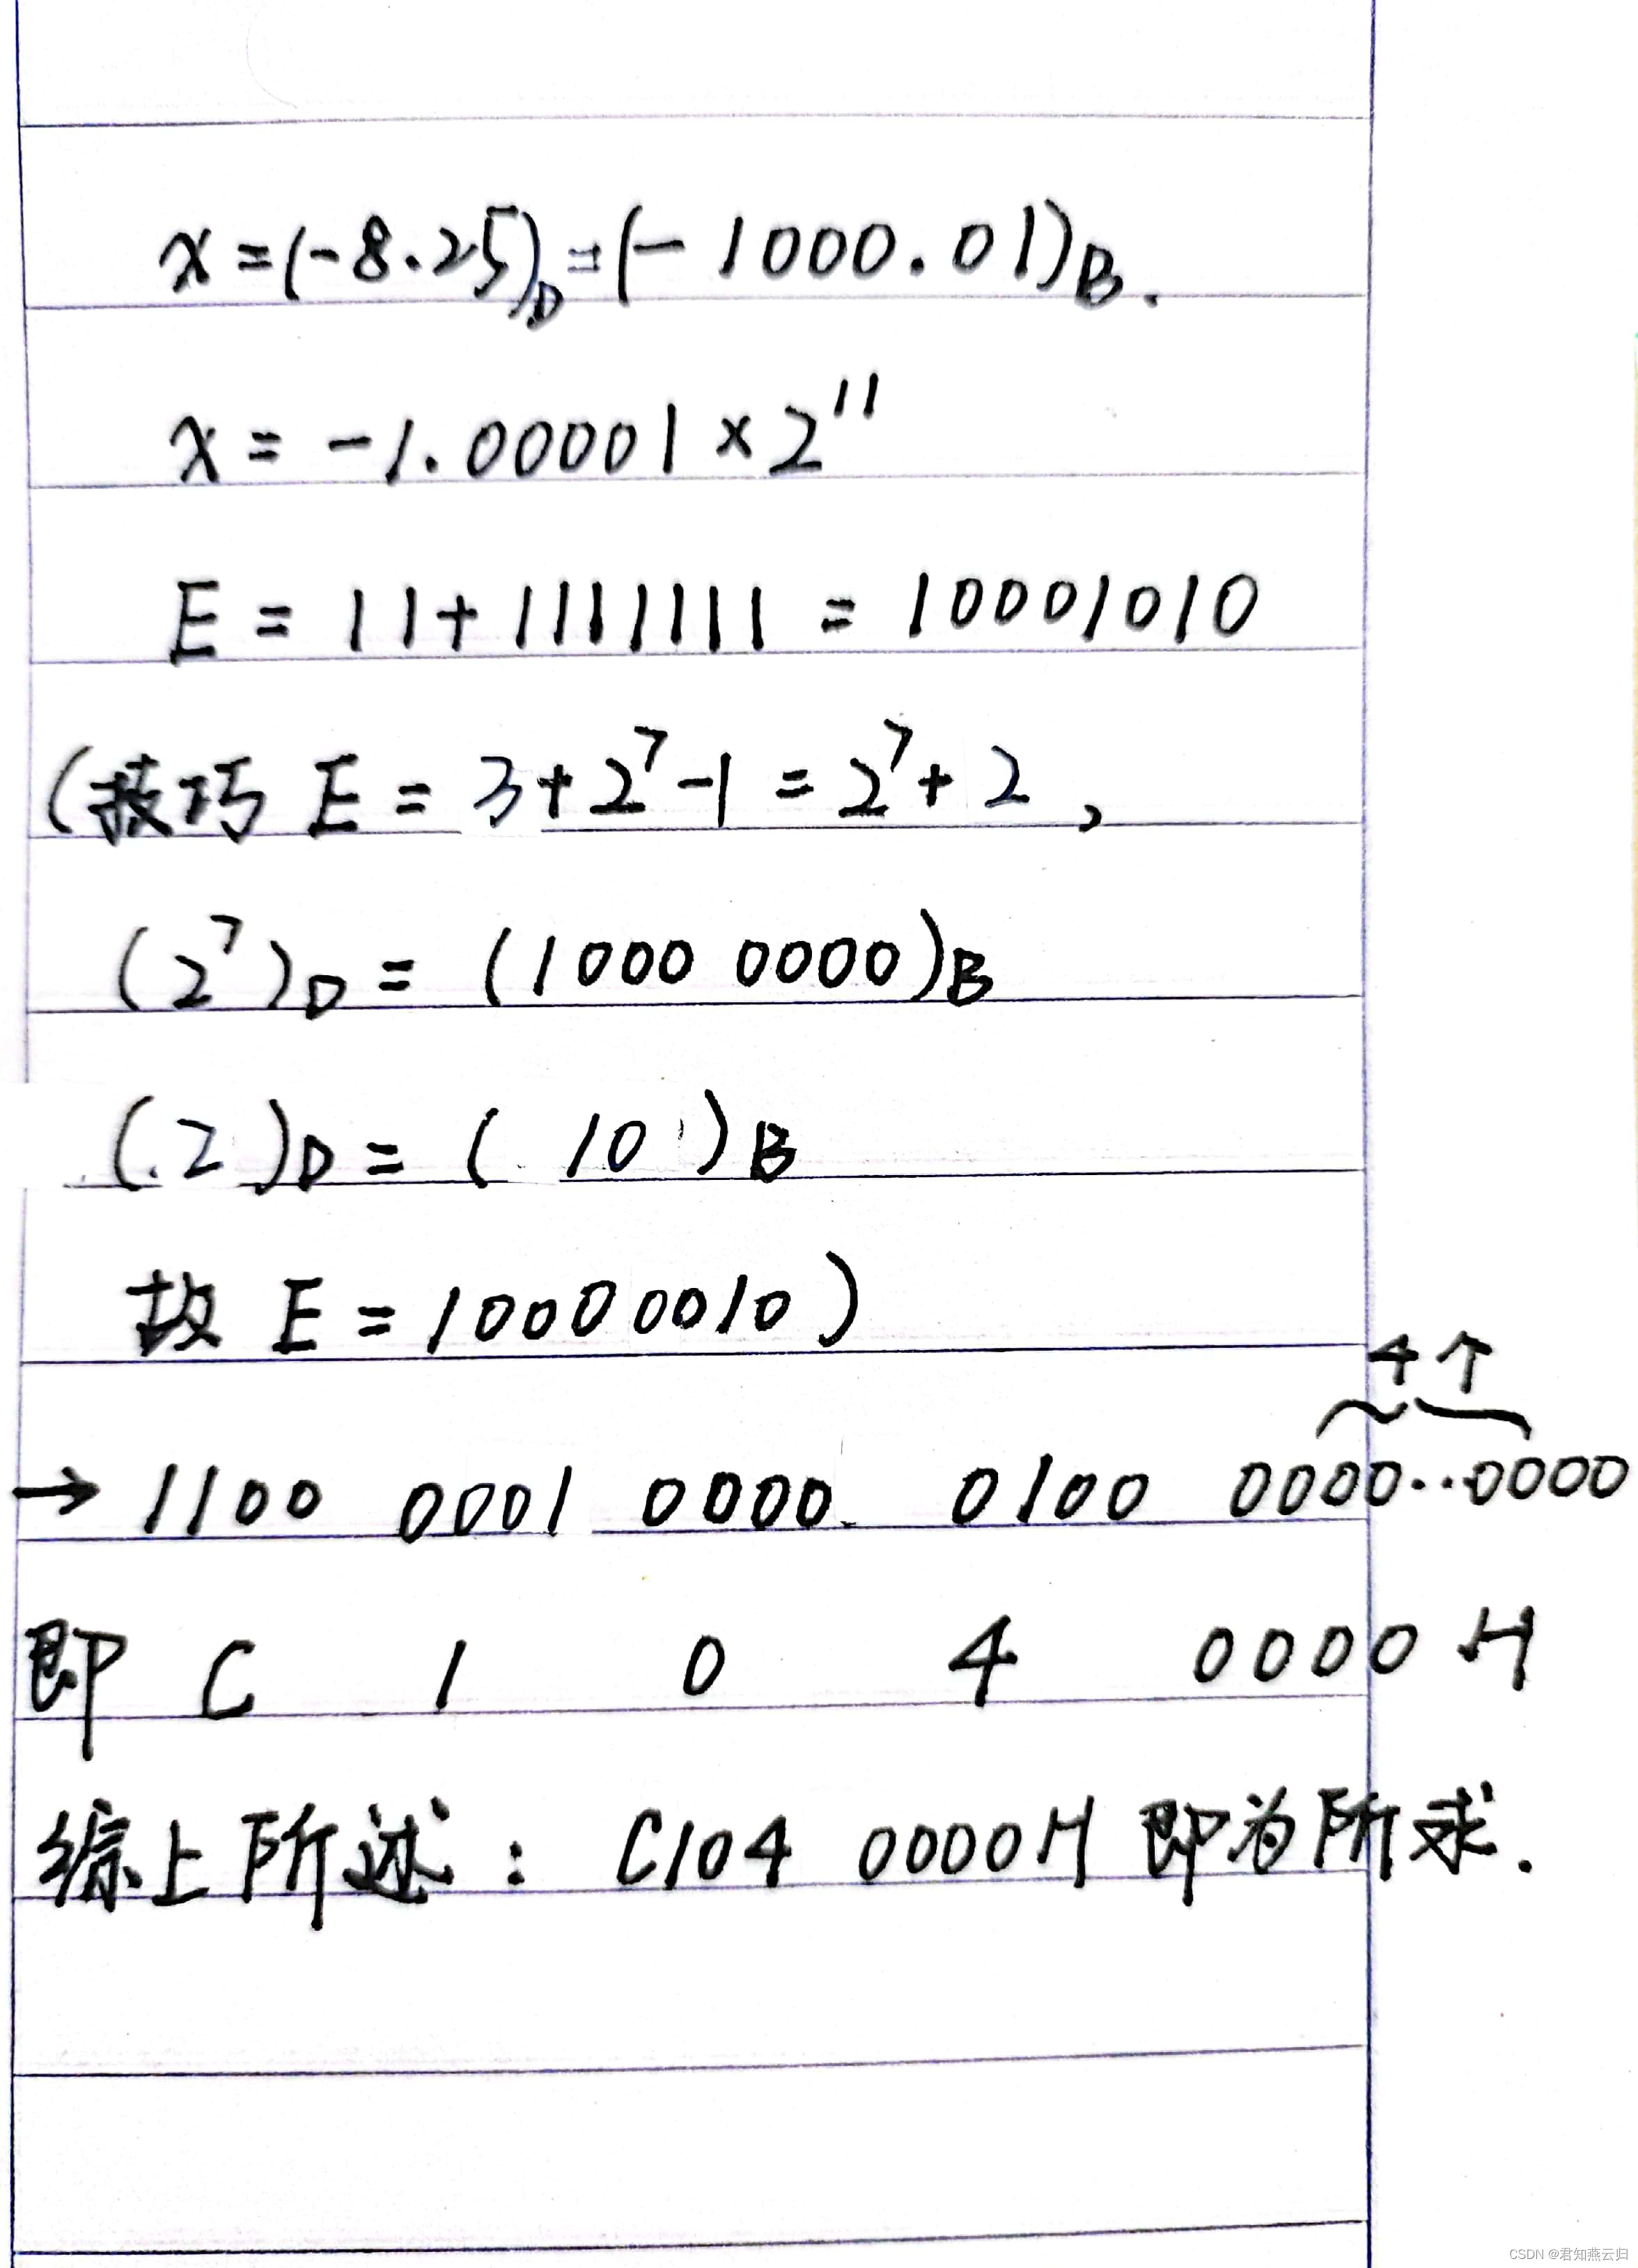 x=(-8.25)D=(-1000.01)B.
x=-1.00001×2^11
E=11+1111111=10001010
(技巧 E=3+2^7-1=2^7+2,
(2^7)D=(1000 0000)B
(2)D=(10)B
故 E=10000010)
4个
→ 1100 0001 0000 0100 0000..0000
即 C 1 0 4 0000H
综上所述: C104 0000H 即为所求.
CSDN @君知燕云归